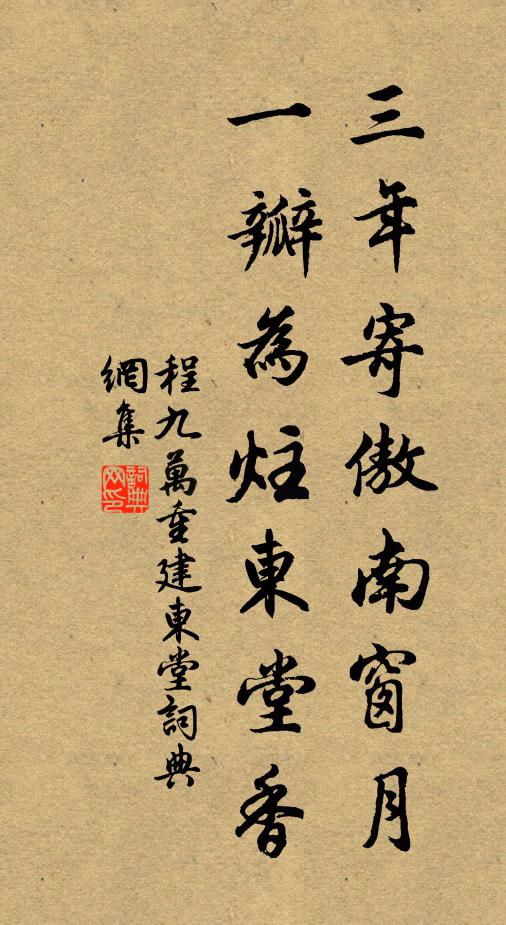 三年寄傲南窗月
一瓣為炷東堂香
程九萬重建東堂詞典
網集
詞典網印